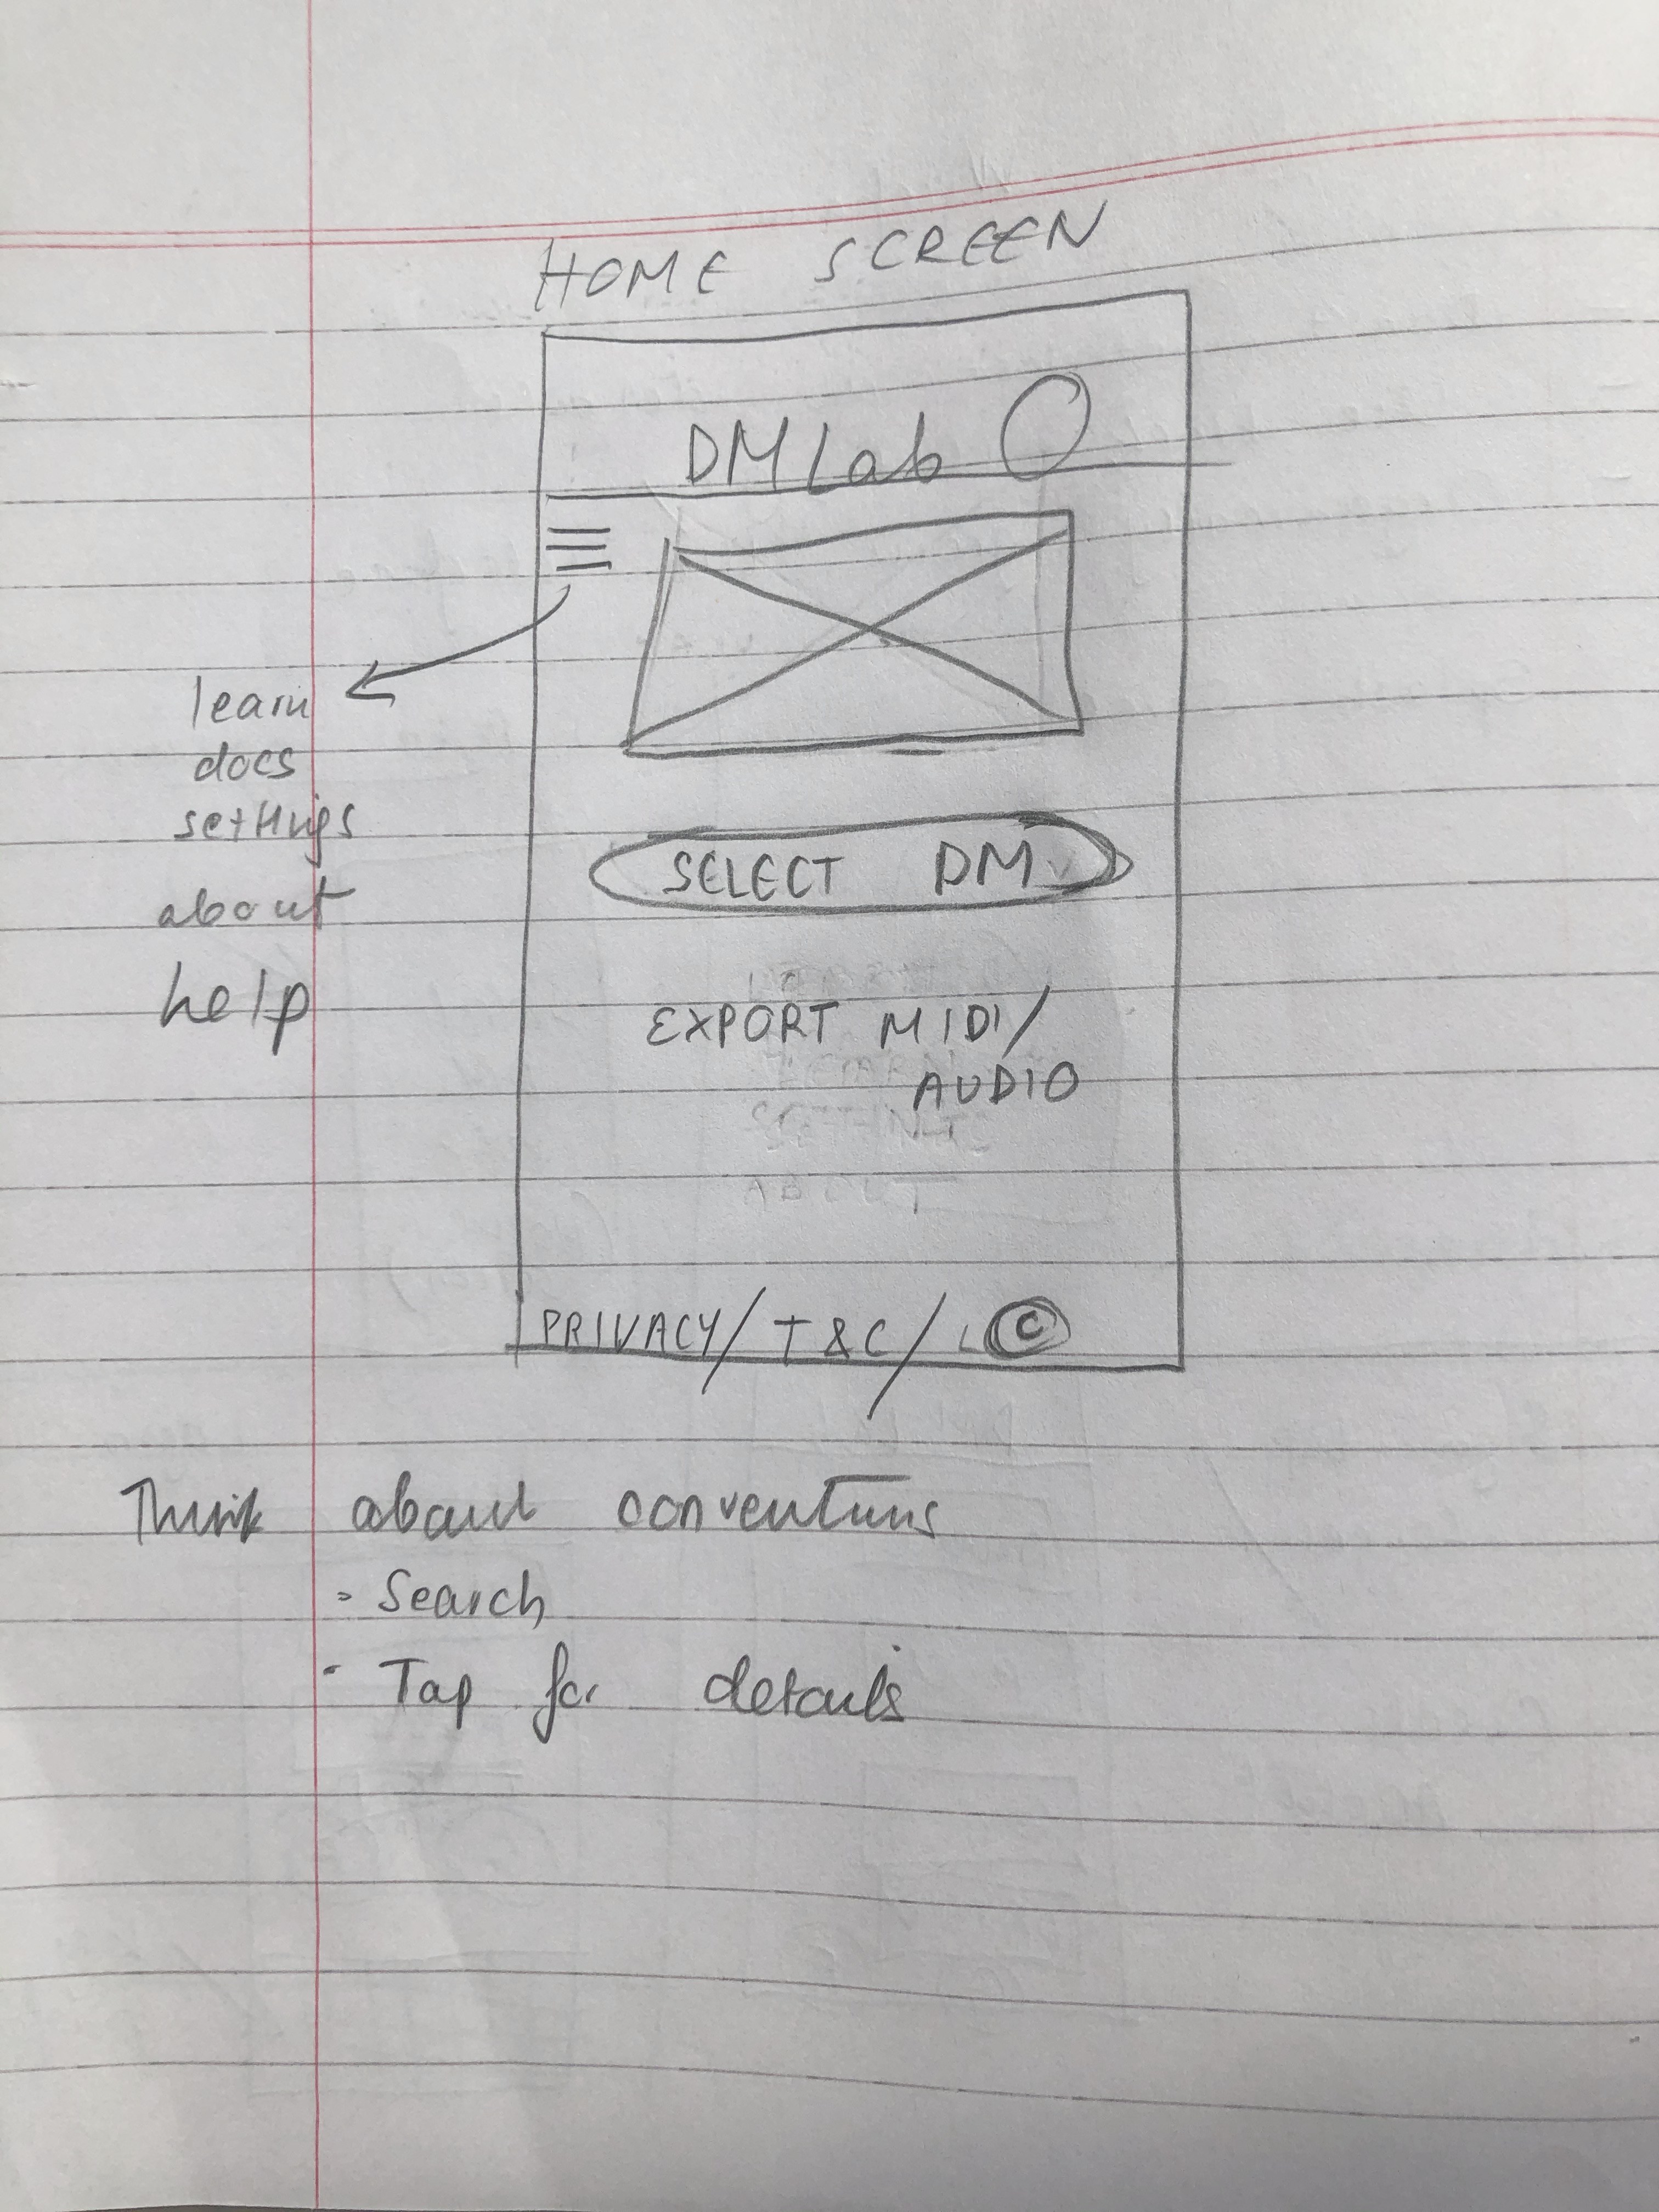 HOME SCREEN
DMLab
learn
docs
settings
about
help
SELECT DM
EXPORT MIDI/
AUDIO
PRIVACY/ T&C/ ©
Think about conventions
- Search
- Tap for details